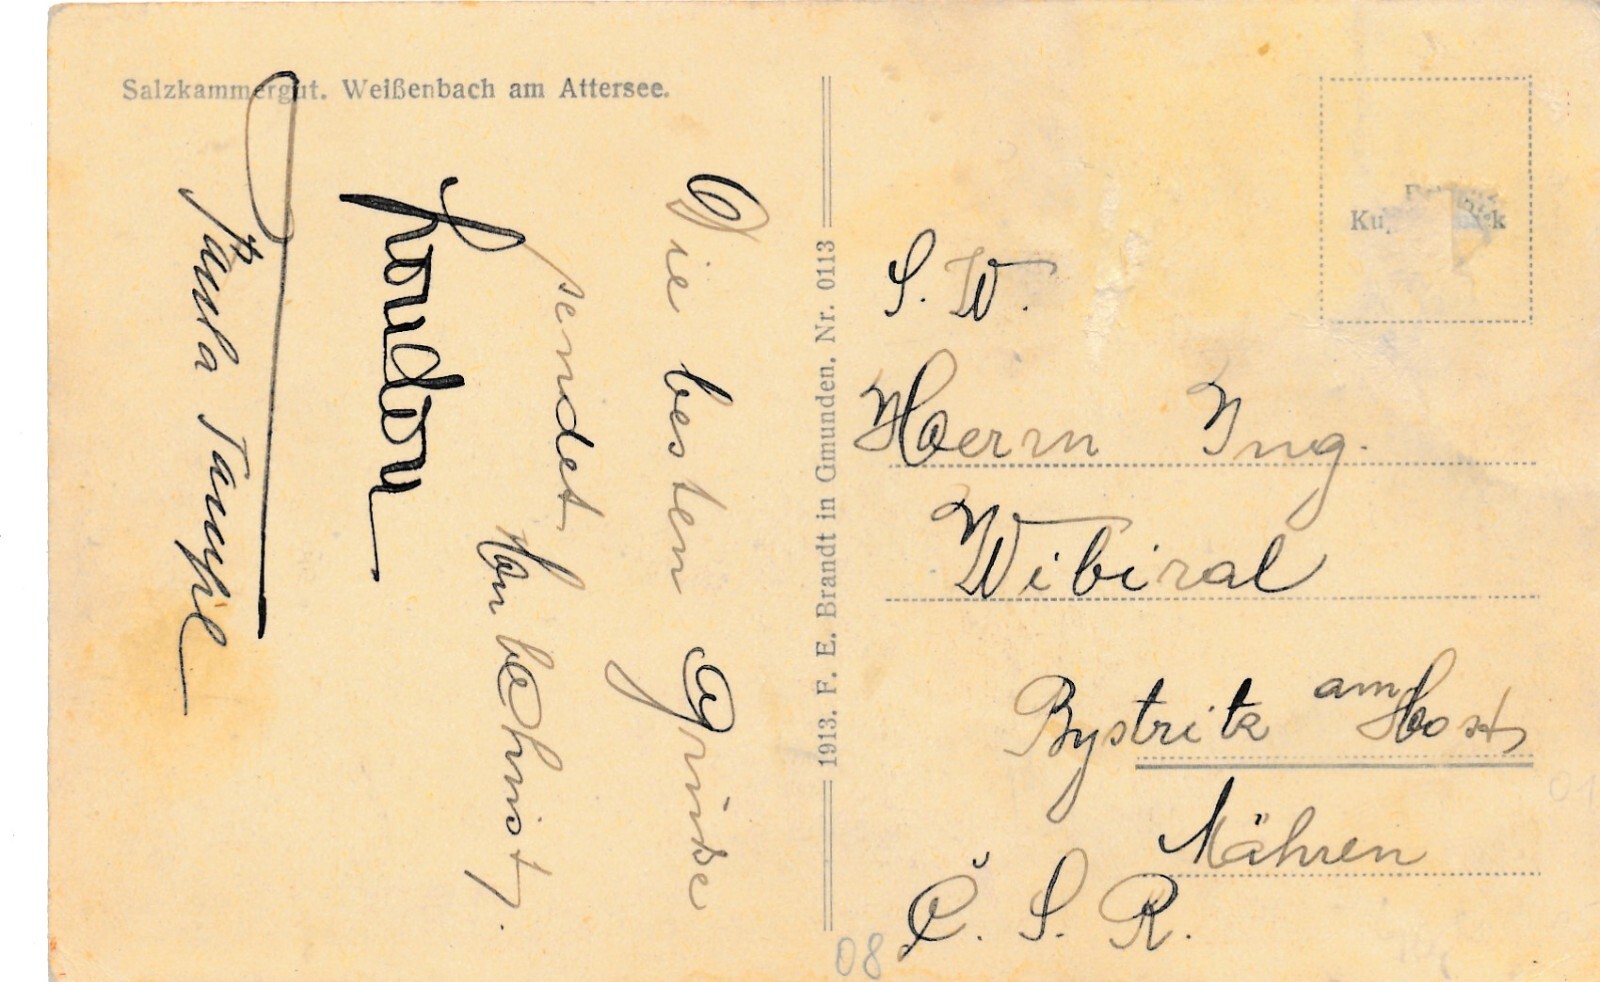 Salzkammergut. Weißenbach am Attersee.
Die besten Grüsse
sendet
London
Paula
1913. F. E. Brandt in Gmunden. Nr. 0113
S. W.
Herrn Ing.
Wibiral
Bystritz am Host
Mähren
Č. S. R.
08